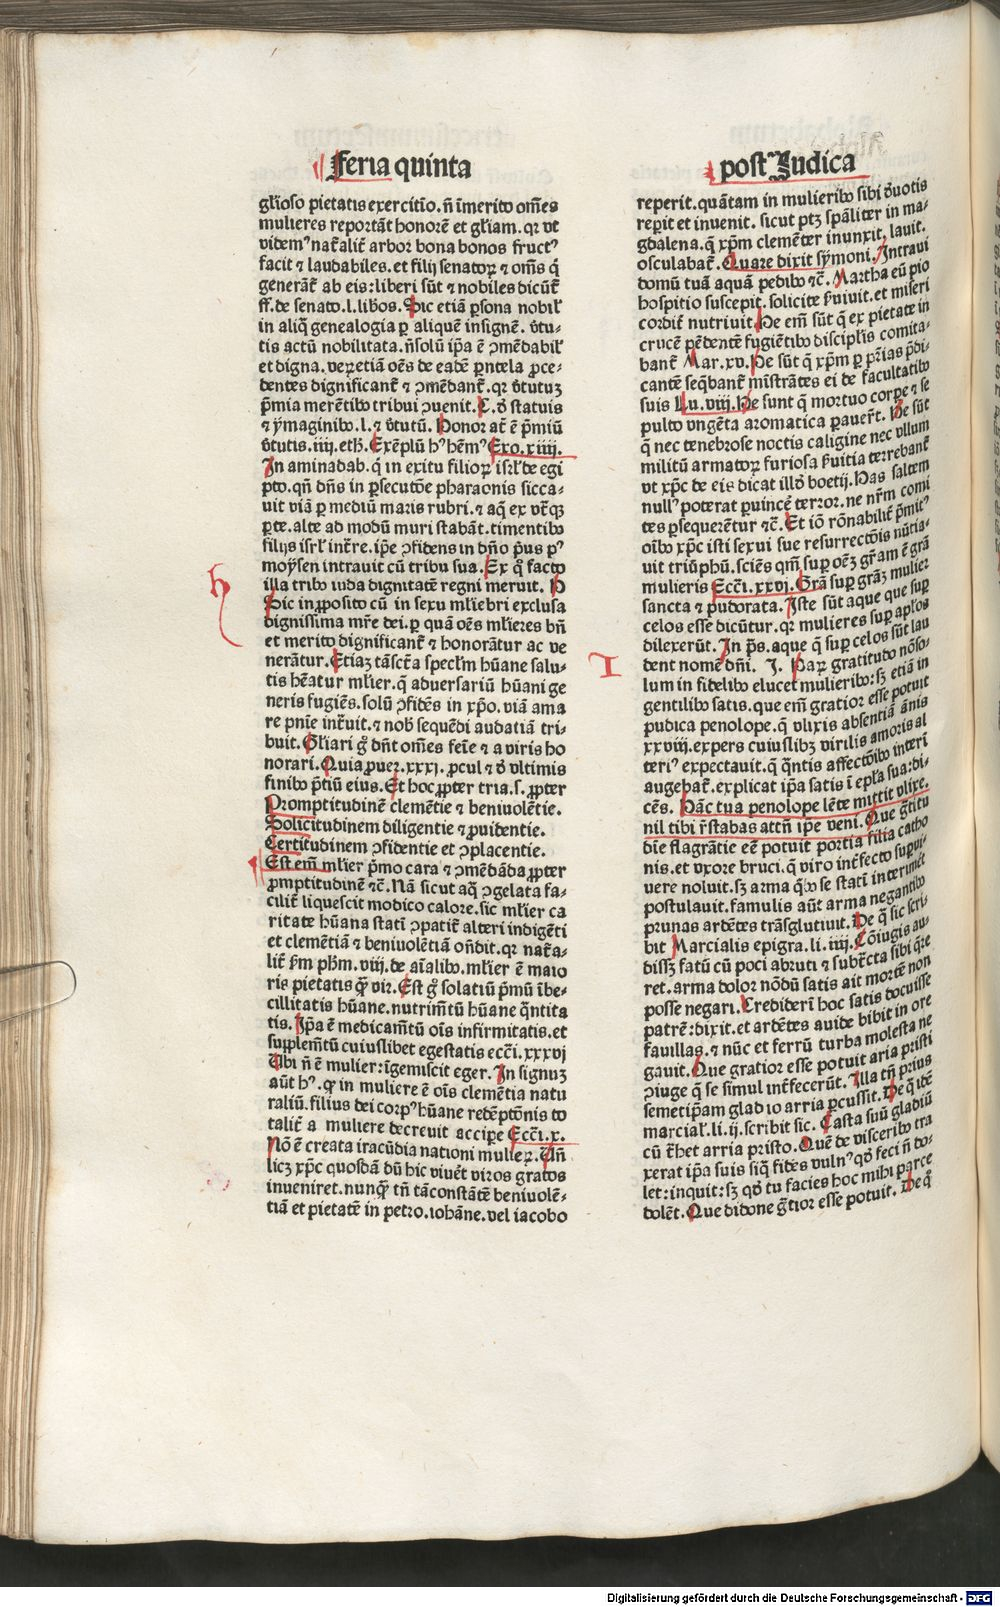 feria quinta
post Judica
gl̃ioso pietatis exercitio. ñ ĩmerito om̃es
mulieres reportãt honorẽ et gl̃iam. qꝛ vt
videmꝰ nat̃alit̃ arboꝛ bona bonos fructꝰ
facit ⁊ laudabiles. et filij senatoꝝ ⁊ om̃s q̃
generãt̃ ab eis: liberi sũt ⁊ nobiles dicũt̃
ff. de senato. l. lib̃os. Sic etiã ꝑsona nobil̃
in aliq̃ genealogia ꝑ aliquẽ insignẽ. ṽtu-
tis actũ nobilitata. ñ solũ ip̃a ẽ ꝯmẽdabil̃
et digna. veꝝ etiã oẽs de eadẽ ꝑntela ꝓce-
dentes dignificant̃ ⁊ ꝯmẽdant̃. qꝛ ṽtutuꝫ
p̃mia merẽtibꝰ tribui ꝯuenit. C. ð statuis
⁊ ymaginibꝰ. l. ⁊ ṽtutũ. Honoꝛ at̃ ẽ p̃miũ
ṽtutis. iiij. eth̃. Exẽplũ hꝰ hẽmꝰ Exo. xiiij.
In aminadab. q̃ in exitu filioꝝ isrl̃ de egi
pto. qñ dñs in ꝑsecutõe pharaonis sicca-
uit viã ꝑ mediũ maris rubri. ⁊ aq̃ ex vt̃qꝫ
ꝑte. alte ad modũ muri stabãt. timentibꝰ
filijs isrl̃ int̃re. ip̃e ꝯfidens in dño p̃us pꝰ
moysen intrauit cũ tribu sua. Ex q̃ facto
illa tribꝰ iuda dignitatẽ regni meruit. H
h
Sic in ꝓposito cũ in sexu ml̃iebri exclusa
dignissima mr̃e dei. ꝑ quã oẽs ml̃ieres bñ
et merito dignificant̃ ⁊ honorãtur ac ve
nerãtur. Etiaꝫ tãsct̃a specl̃m hũane salu-
tis hẽatur ml̃ier. q̃ aduersariũ hũani ge
neris fugiẽs. solũ ꝯfidẽs in xp̃o. viã ama
re pñie int̃uit. ⁊ nob̃ sequẽdi audatiã tri-
buit. Gl̃iari g̃ dñt om̃es feĩe ⁊ a viris ho
norari. Quia ꝓueꝝ. xxxi. ꝓcul ⁊ ð vltimis
finibꝰ p̃tiũ eius. Et hoc ꝓpter tria. s. ꝓpter
Promptitudinẽ clemẽtie ⁊ beniuolẽtie.
Solicitudinem diligentie ⁊ ꝓuidentie.
Certitudinem ꝯfidentie et ꝯplacentie.
Est em̃ ml̃ier p̃mo cara ⁊ ꝯmẽdãda ꝓpter
ꝓmptitudinẽ ⁊c̃. Nã sicut aq̃ ꝯgelata fa-
cilit̃ liquescit modico calore. sic ml̃ier ca
ritate hũana stati ꝯpatit̃ alteri indigẽti
et clemẽtiã ⁊ beniuolẽtiã oñdit. qꝛ nat̃a-
lit̃ ẜm ph̃m. viij. de aĩalibꝰ. ml̃ier ẽ maio
ris pietatis q̃ vir. Est g̃ solatiũ p̃mũ ĩbe-
cillitatis hũane. nutrim̃tũ hũane q̃ntita
tis. Ip̃a ẽ medicam̃tũ oĩs infirmitatis. et
supplem̃tũ cuiuslibet egestatis ecc̃i. xxxvj
Ubi ñ ẽ mulier: ĩgemiscit eger. In signuꝫ
aũt hꝰ. q̃ in muliere ẽ oĩs clementia natu
raliũ. filius dei corpꝰ hũane redẽptõnis to
talit̃ a muliere decreuit accipe Ecc̃i. x.
Nõ ẽ creata iracũdia nationi mulieꝝ. Uñ
licꝫ xp̃c quosdã dũ hic viuẽt viros gratos
inueniret. nunq̃ tñ tã constãtẽ beniuolẽ-
tiã et pietatẽ in petro. iohãne. vel iacobo
reperit. quãtam in mulieribꝰ sibi ð̃uotis
rep̃it et inuenit. sicut ptꝫ sp̃aliter in ma-
gdalena. q̃ xp̃m clemẽter inunxit. lauit.
osculabat̃. Quare dixit symoni. Intraui
domũ tuã aquã pedibꝰ ⁊c̃. Martha eũ pio
hospitio suscepit. solicite ẜuiuit. et miseri
cordit̃ nutriuit. He em̃ sũt q̃ ex pietate in
crucẽ pẽdentẽ fugiẽtibꝰ discipl̃is comita-
bant̃ Mar. xv. He sũt q̃ xp̃m ꝑ pr̃ias p̃di-
cantẽ seq̃bant̃ mĩstrãtes ei de facultatibꝰ
suis Lu. viij. He sunt q̃ mortuo corꝑe ⁊ se
pulto vngẽta aromatica ꝑauer̃t. He sũt
q̃ nec tenebrose noctis caligine nec vllum
militũ armatoꝝ furiosa ẜuitia terrebant̃
vt xp̃c de eis dicat illð boetij. Has saltem
nullꝰ poterat ꝑuincẽ terroꝛ. ne nr̃m comi
tes ꝑsequerẽtur ⁊c̃. Et iõ rõnabilit̃ p̃mitꝰ
oĩbꝰ xp̃c isti sexui sue resurrectõis nũtia-
uit triũphũ. sciẽs qm̃ suꝑ oẽꝫ gr̃am ẽ gr̃a
mulieris Ecc̃i. xxvj. Gr̃a suꝑ gr̃aꝫ mulier
sancta ⁊ pudorata. Iste sũt aque que suꝑ
celos esse dicũtur. qꝛ mulieres suꝑ ap̃los
dilexerũt. In p̃s. aque q̃ suꝑ celos sũt lau
dent nomẽ dñi. I. Haꝝ gratitudo nõso-
I
lum in fidelibꝰ elucet mulieribꝰ: sꝫ etiã in
gentilibꝰ satis. que em̃ gratior esse potuit
pudica penolope. q̃ vlixis absentiã ãnis
xxviij. expers cuiuslibꝫ virilis amoris al
teriꝰ expectauit. q̃ q̃ntis affectõibꝰ interĩ
augebat̃. explicat ip̃a satis ĩ ep̃la sua: di-
cẽs. Hãc tua penolope lẽte mittit vlixe.
nil tibi r̃stabas attñ ip̃e veni. Que g̃titu
dĩe flagrãtie eẽ potuit portia filia catho
nis. et vxore bruci. q̃ viro int̃fecto suꝑui-
uere noluit. sꝫ arma q̃bꝰ se statĩ interimẽt
postulauit. famulis aũt arma negantibꝰ
prunas ardẽtes trãsglutiuit. De q̃ sic scri-
bit Marcialis epigra. li. iiij. Cõiugis au-
dissꝫ fatũ cũ poci abruti ⁊ subt̃cta sibi q̃re
ret. arma dolor nõdũ satis ait mortẽ non
posse negari. Crediderĩ hoc satis docuisse
patrẽ: dixit. et ardẽtes auide bibit in ore
fauillas. ⁊ nũc et ferrũ turba molesta ne
gauit. Que gratioꝛ esse potuit aria p̃isti
ꝯiuge q̃ se simul int̃fecerũt. Illa tñ prius
semetip̃am gladio arria ꝑcussit. De q̃ idẽ
marcial̃. li. ij. scribit sic. Casta suũ gladiũ
cũ t̃het arria pristo. Quẽ de visceribꝰ tra
xerat ip̃a suis siq̃ fides vulnꝰ qð feci ñ do-
let: inquit: sꝫ qð tu facies hoc mihi parce
dolẽt. Que didone g̃tior esse potuit. De q̃
Digitalisierung gefördert durch die Deutsche Forschungsgemeinschaft - DFG